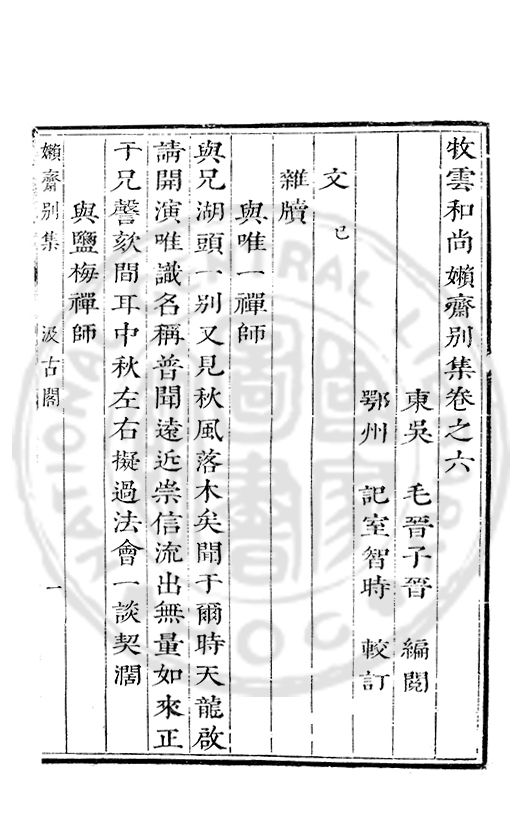 牧雲和尚嬾齋别集卷之六
東吳　毛晉子晉　編閱
鄂州　記室智時　較訂
文　已
雜牘
與唯一禪師
與兄湖頭一别又見秋風落木矣聞于爾時天龍啟
請開演唯識名稱普聞遠近崇信流出無量如來正
于兄謦欬間耳中秋左右擬過法會一談契濶
與鹽梅禪師
嬾齋别集　汲古閣　一